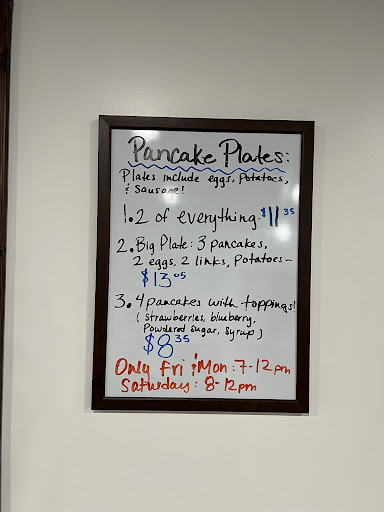 Pancake Plates:
Plates include eggs, Potatoes,
& Sausage!
1. 2 of everything-$11 35
2. Big Plate: 3 pancakes,
2 eggs, 2 links, Potatoes-
$13 05
3. 4 pancakes with toppings!
(strawberries, blueberry,
Powdered sugar, syrup)
$8 35
Only Fri & Mon: 7-12pm
Saturday: 8-12pm